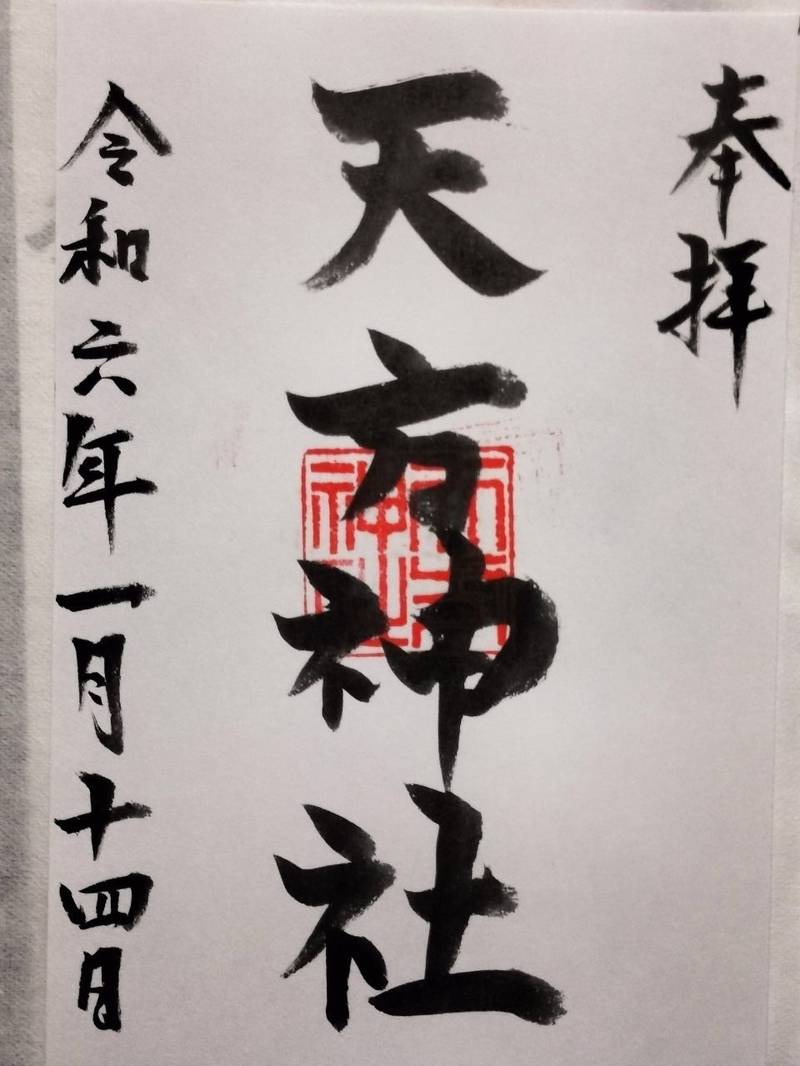 奉拝
天方神社
令和六年一月十四日